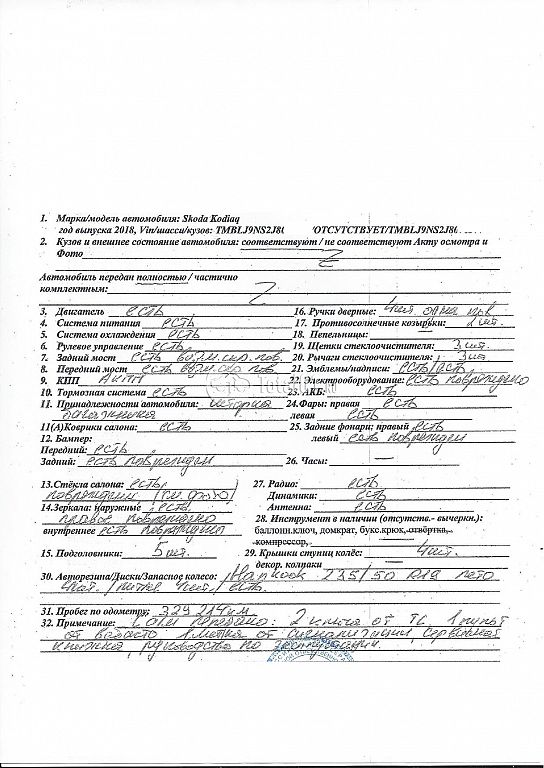 1. Марка/модель автомобиля: Skoda Kodiaq
год выпуска 2018, Vin/шасси/кузов: TMBLJ9NS2J8 /ОТСУТСТВУЕТ/TMBLJ9NS2J8
2. Кузов и внешнее состояние автомобиля: соответствуют / не соответствуют Акту осмотра и
Фото
Автомобиль передан полностью / частично
комплектным:
3. Двигатель есть
4. Система питания есть
5. Система охлаждения есть
6. Рулевое управление есть
7. Задний мост есть возм. скр. пов.
8. Передний мост есть возм. скр. пов
9. КПП АКПП
10. Тормозная система есть
11. Принадлежности автомобиля: шторка
багажника
11(А)Коврики салона: есть
12. Бампер:
Передний: есть
Задний: есть поврежден
13.Стёкла салона: есть,
повреждены (см фото)
14.Зеркала: наружные есть,
правое повреждено
внутреннее есть повреждено
15. Подголовники: 5 шт.
16. Ручки дверные: 4 шт. одна
17. Противосолнечные козырьки: 2 шт.
18. Пепельницы:
19. Щетки стеклоочистителя: 3 шт.
20. Рычаги стеклоочистителя: 3 шт
21. Эмблемы/надписи: есть/есть
22. Электрооборудование: есть повреждено
23. АКБ: есть
24.Фары: правая есть
левая есть
25. Задние фонари: правый есть
левый есть поврежден
26. Часы:
27. Радио: есть
Динамики: есть
Антенна: есть
28. Инструмент в наличии (отсутств.- вычеркн.):
баллонн.ключ, домкрат, букс.крюк, отвёртка,
компрессор,
29. Крышки ступиц колёс: 4 шт.
декор. колпаки
30. Авторезина/Диски/Запасное колесо: Hankook 235/50 R19 лето
4 шт. / литье 4 шт / есть
31. Пробег по одометру: 329 214 км
32. Примечание: С а/м передано: 2 ключа от ТС, 1 пульт
от 1 метка от сигнализации, сервисная
книжка, руководство по эксплуатации.